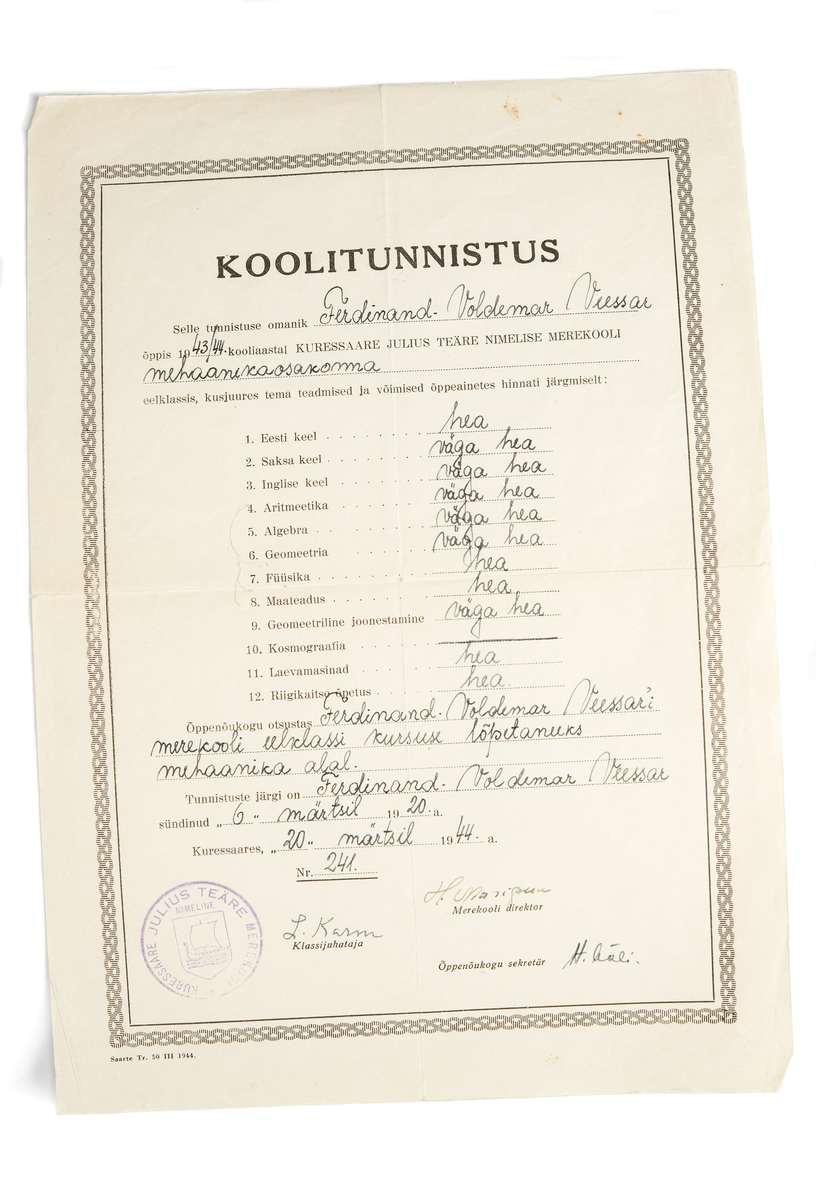 KOOLITUNNISTUS
Selle tunnistuse omanik Ferdinand-Voldemar Veessar
õppis 1943/44. kooliaastal KURESSAARE JULIUS TEÄRE NIMELISE MEREKOOLI
mehaanikaosakonna
eelklassis, kusjuures tema teadmised ja võimised õppeainetes hinnati järgmiselt:
1. Eesti keel hea
2. Saksa keel väga hea
3. Inglise keel väga hea
4. Aritmeetika väga hea
5. Algebra väga hea
6. Geomeetria väga hea
7. Füüsika hea
8. Maateadus hea
9. Geomeetriline joonestamine väga hea
10. Kosmograafia
11. Laevamasinad hea
12. Riigikaitse õpetus hea.
Õppenõukogu otsustas Ferdinand-Voldemar Veessar'i
merekooli eelklassi kursuse lõpetanuks
mehaanika alal.
Tunnistuste järgi on Ferdinand-Voldemar Veessar
sündinud „6" märtsil 1920. a.
Kuressaares, „20" märtsil 1944. a.
Nr. 241.
KURESSAARE JULIUS TEÄRE MEREKOOL
NIMELINE
L. Karm
Klassijuhataja
H.
Merekooli direktor
Õppenõukogu sekretär H.
Saarte Tr. 50 III 1944.